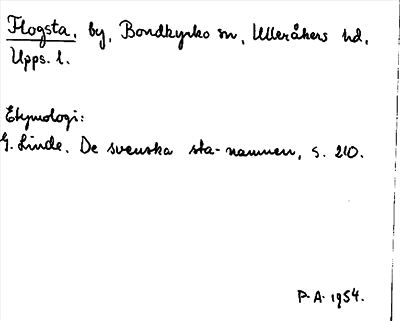 Flogsta, by, Bondkyrko sn, Ulleråkers hd,
Upps. l.
Etymologi:
G. Linde. De svenska sta-namnen, s. 210.
P. A. 1954.